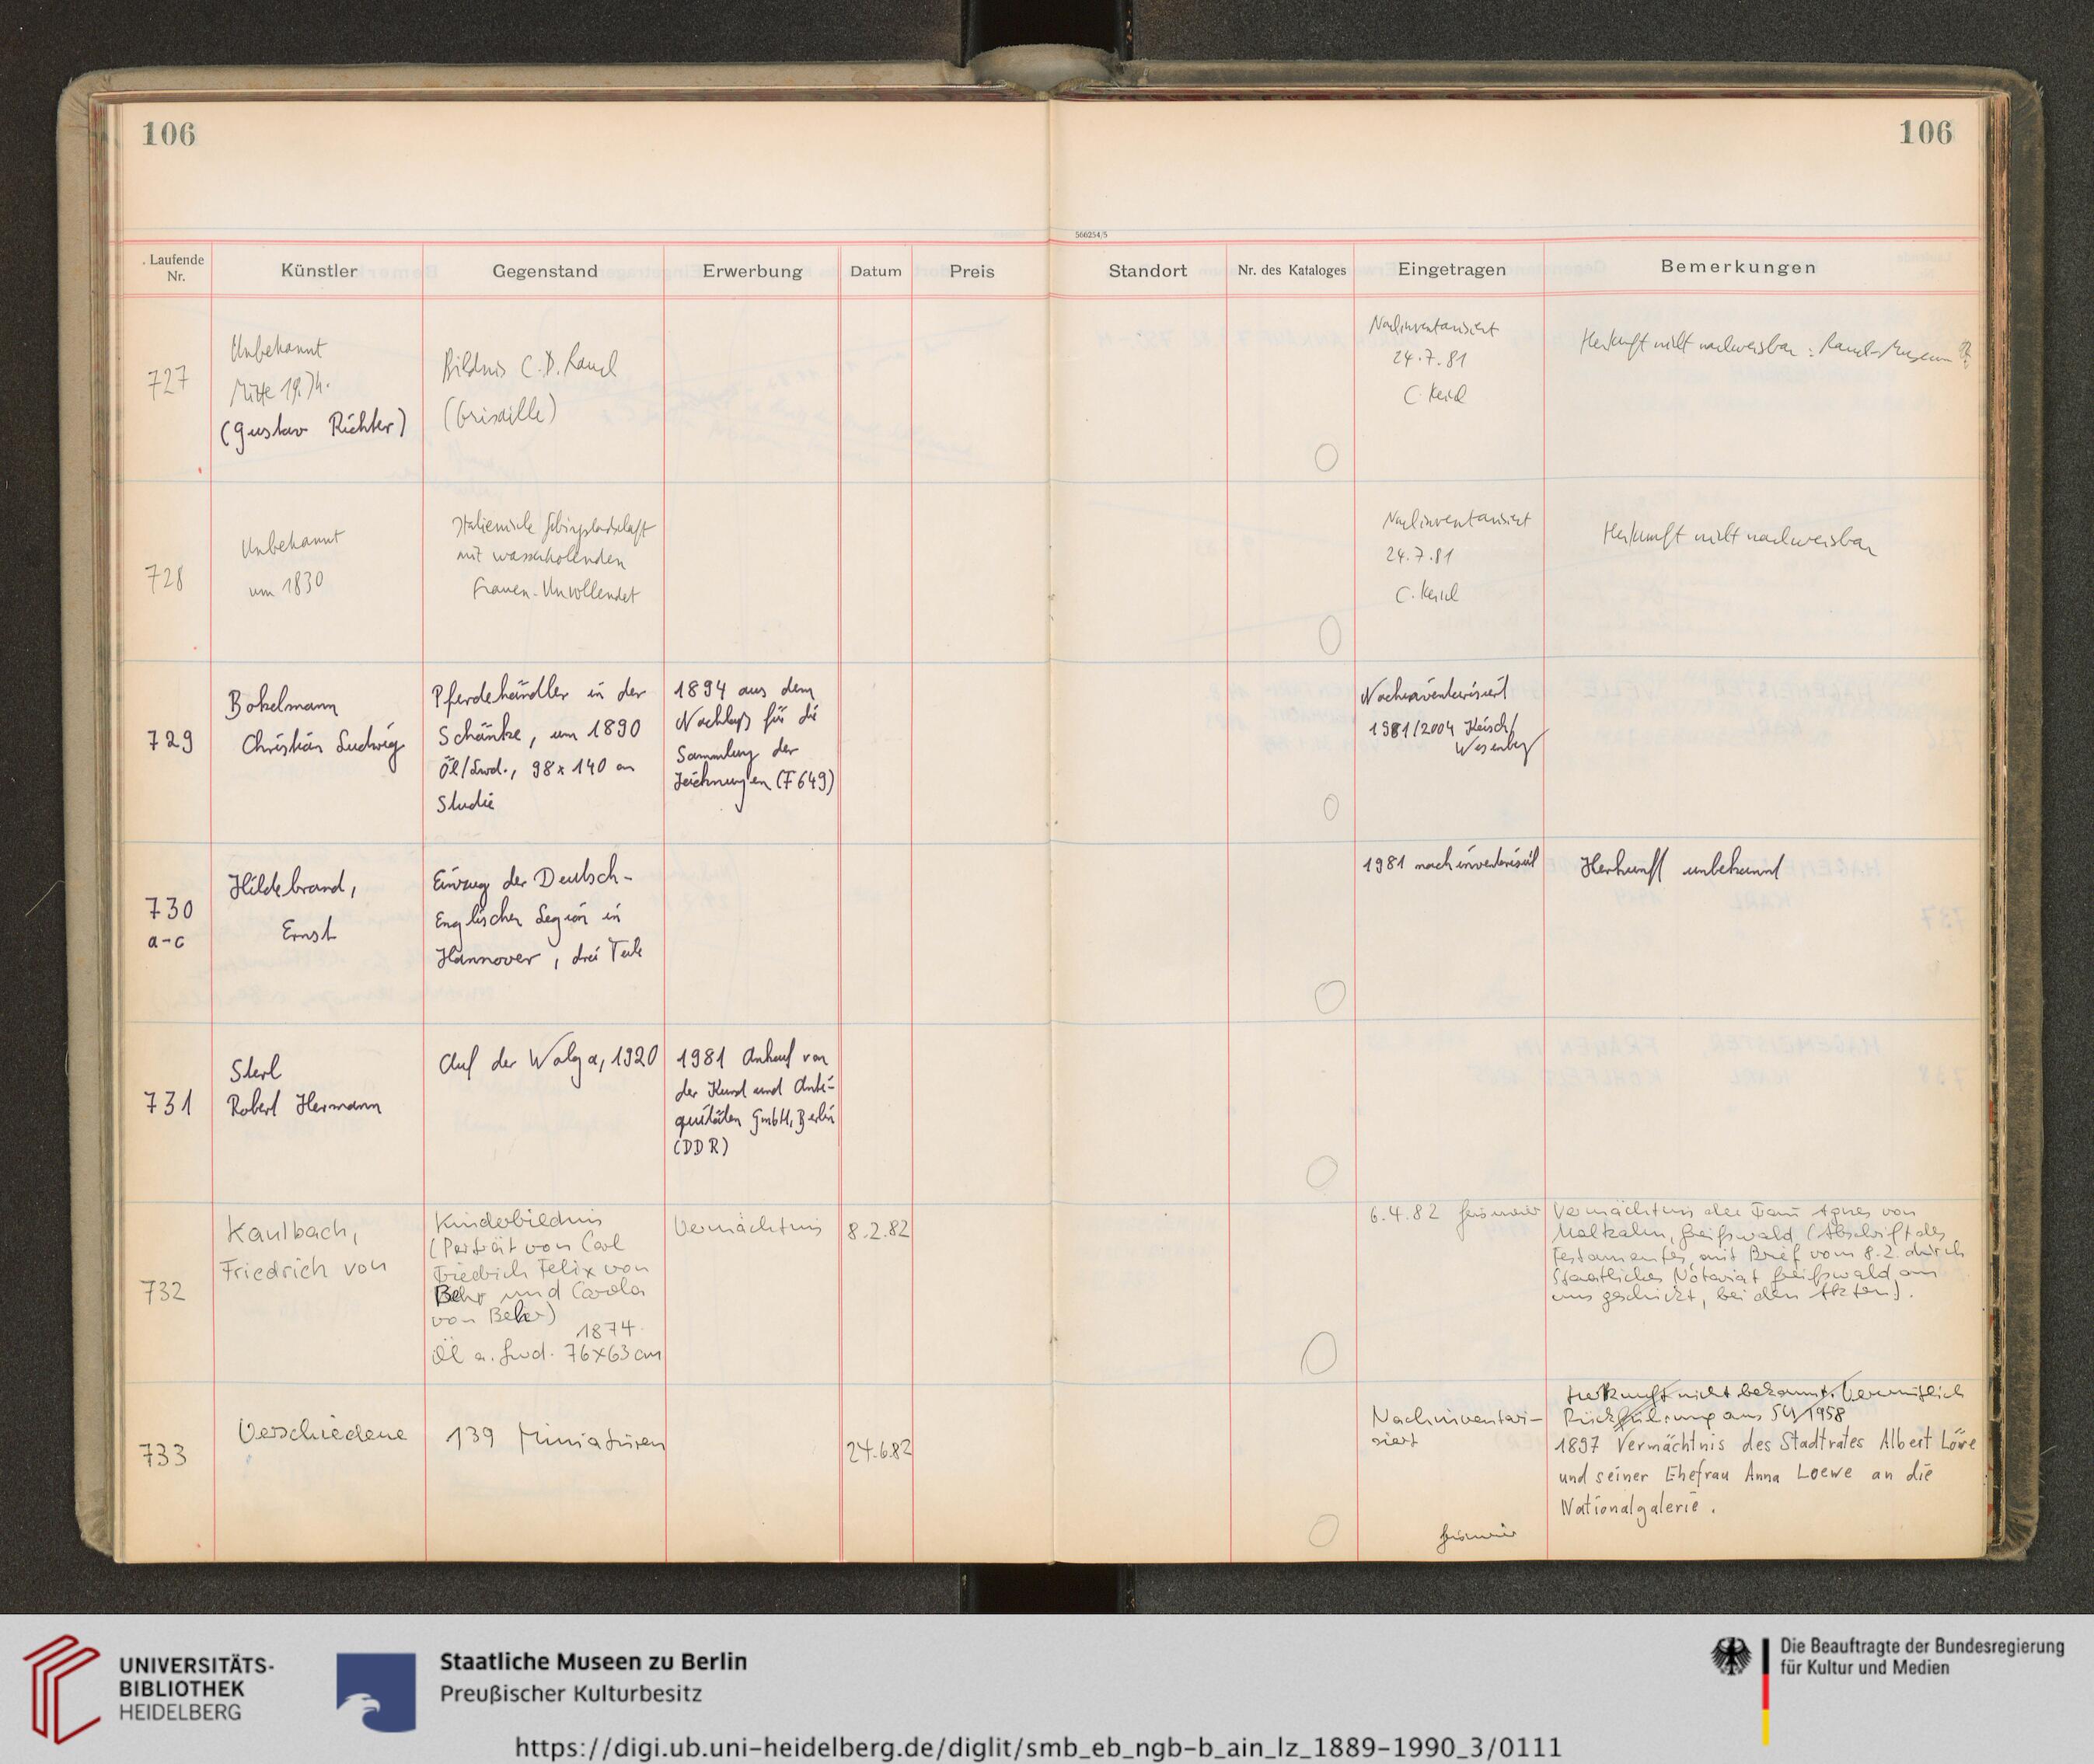 106
106
566254/5
Laufende Nr.
Künstler
Gegenstand
Erwerbung
Datum
Preis
Standort
Nr. des Kataloges
Eingetragen
Bemerkungen
727
Unbekannt
Mitte 19. Jh.
(Gustav Richter)
Bildnis C. D. Rauch
(Grisaille)
Nachinventarisiert
24.7.81
C. Keisch
Herkunft nicht nachweisbar: Rauch-Museum ?
728
Unbekannt
um 1830
Italienische Gebirgslandschaft
mit wasserholenden
Frauen - Unvollendet
Nachinventarisiert
24.7.81
C. Keisch
Herkunft nicht nachweisbar
729
Bokelmann
Christian Ludwig
Pferdehändler in der
Schänke, um 1890
Öl/Lwd., 98 x 140 cm
Studie
1894 aus dem
Nachlaß für die
Sammlung der
Zeichnungen (F 649)
Nachinventarisiert
1981/2004 Keisch/
Wesenberg
730
a-c
Hildebrand,
Ernst
Einzug der Deutsch-
Englischen Legion in
Hannover, drei Teile
1981 nachinventarisiert
Herkunft unbekannt
731
Sterl
Robert Hermann
Auf der Wolga, 1920
1981 Ankauf von
der Kunst und Anti-
quitäten GmbH, Berlin
(DDR)
732
Kaulbach,
Friedrich von
Kinderbildnis
(Porträt von Carl
Friedrich Felix von
Behr und Carola
von Behr)
1874
Öl a. Lwd. 76x63 cm
Vermächtnis
8.2.82
6.4.82
Vermächtnis der Frau Agnes von
Maltzahn, Greifswald (Abschrift des
Testamentes, mit Brief vom 8.2. durch
Staatliches Notariat Greifswald an
uns geschickt, bei den Akten).
733
Verschiedene
139 Miniaturen
24.6.82
Nachinventari-
siert
Herkunft nicht bekannt. Vermutlich
Rückführung aus SU 1958
1897 Vermächtnis des Stadtrates Albert Löwe
und seiner Ehefrau Anna Loewe an die
Nationalgalerie.
UNIVERSITÄTS-
BIBLIOTHEK
HEIDELBERG
Staatliche Museen zu Berlin
Preußischer Kulturbesitz
Die Beauftragte der Bundesregierung
für Kultur und Medien
https://digi.ub.uni-heidelberg.de/diglit/smb_eb_ngb-b_ain_lz_1889-1990_3/0111